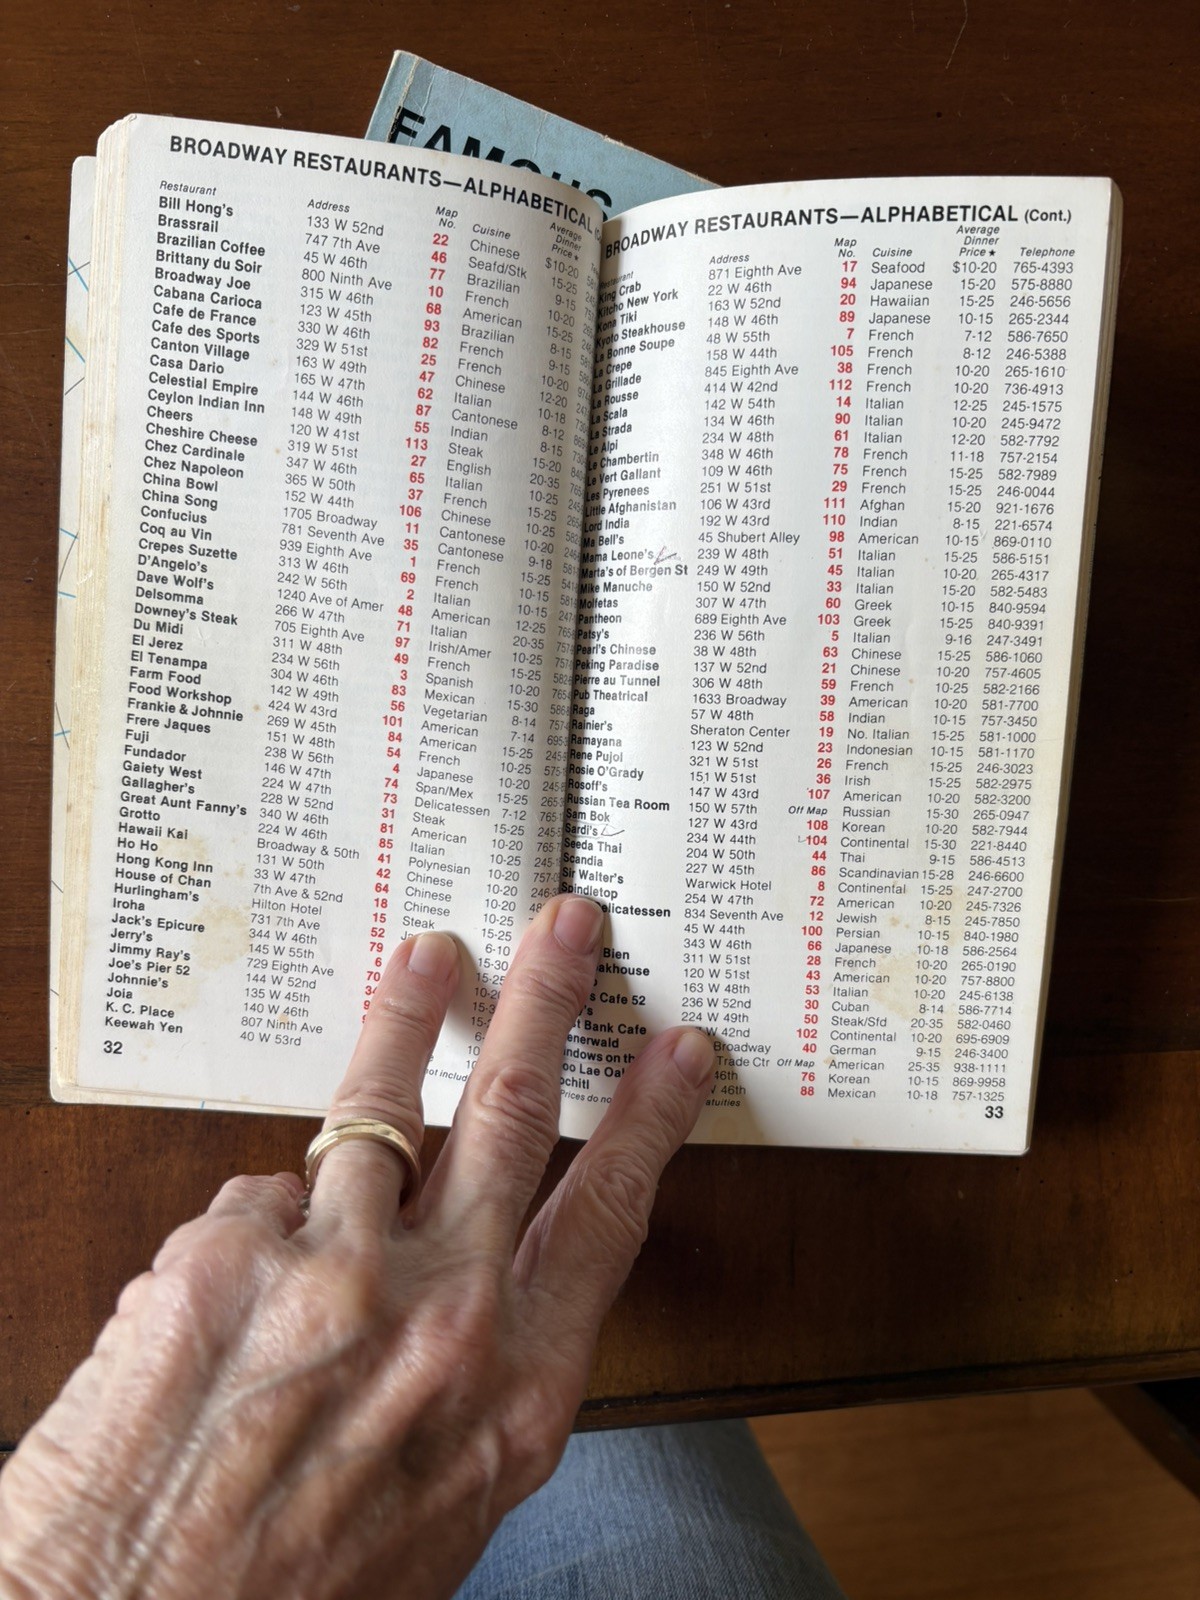 FAMOUS
BROADWAY RESTAURANTS—ALPHABETICAL
Restaurant Address Map No. Cuisine Average Dinner Price★
Bill Hong's 133 W 52nd 22 Chinese $10-20
Brassrail 747 7th Ave 46 Seafd/Stk 15-25
Brazilian Coffee 45 W 46th 77 Brazilian 9-15
Brittany du Soir 800 Ninth Ave 10 French 10-20
Broadway Joe 315 W 46th 68 American 15-25
Cabana Carioca 123 W 45th 93 Brazilian 8-15
Cafe de France 330 W 46th 82 French 9-15
Cafe des Sports 329 W 51st 25 French 10-20
Canton Village 163 W 49th 47 Chinese 12-20
Casa Dario 165 W 47th 62 Italian 10-18
Celestial Empire 144 W 46th 87 Cantonese 8-12
Ceylon Indian Inn 148 W 49th 55 Indian 8-15
Cheers 120 W 41st 113 Steak 15-20
Cheshire Cheese 319 W 51st 27 English 20-35
Chez Cardinale 347 W 46th 65 Italian 10-25
Chez Napoleon 365 W 50th 37 French 15-25
China Bowl 152 W 44th 106 Chinese 10-25
China Song 1705 Broadway 11 Cantonese 10-20
Confucius 781 Seventh Ave 35 Cantonese 9-18
Coq au Vin 939 Eighth Ave 1 French 15-25
Crepes Suzette 313 W 46th 69 French 10-15
D'Angelo's 242 W 56th 2 Italian 10-15
Dave Wolf's 1240 Ave of Amer 48 American 12-25
Delsomma 266 W 47th 71 Italian 20-35
Downey's Steak 705 Eighth Ave 97 Irish/Amer 10-25
Du Midi 311 W 48th 49 French 15-25
El Jerez 234 W 56th 3 Spanish 10-20
El Tenampa 304 W 46th 83 Mexican 15-30
Farm Food 142 W 49th 56 Vegetarian 8-14
Food Workshop 424 W 43rd 101 American 7-14
Frankie & Johnnie 269 W 45th 84 American 15-25
Frere Jaques 151 W 48th 54 French 10-25
Fuji 238 W 56th 4 Japanese 10-20
Fundador 146 W 47th 74 Span/Mex 15-25
Gaiety West 224 W 47th 73 Delicatessen 7-12
Gallagher's 228 W 52nd 31 Steak 15-25
Great Aunt Fanny's 340 W 46th 81 American 10-20
Grotto 224 W 46th 85 Italian 10-25
Hawaii Kai Broadway & 50th 41 Polynesian 10-20
Ho Ho 131 W 50th 42 Chinese 10-20
Hong Kong Inn 33 W 47th 64 Chinese 10-25
House of Chan 7th Ave & 52nd 18 Chinese 15-25
Hurlingham's Hilton Hotel 15 Steak
Iroha 731 7th Ave 52
Jack's Epicure 344 W 46th 79
Jerry's 145 W 55th 6
Jimmy Ray's 729 Eighth Ave 70
Joe's Pier 52 144 W 52nd
Johnnie's 135 W 45th
Joia 140 W 46th
K. C. Place 807 Ninth Ave
Keewah Yen 40 W 53rd
32
BROADWAY RESTAURANTS—ALPHABETICAL (Cont.)
Restaurant Address Map No. Cuisine Average Dinner Price★ Telephone
King Crab 871 Eighth Ave 17 Seafood $10-20 765-4393
Kitcho New York 22 W 46th 94 Japanese 15-20 575-8880
Kona Tiki 163 W 52nd 20 Hawaiian 15-25 246-5656
Kyoto Steakhouse 148 W 46th 89 Japanese 10-15 265-2344
La Bonne Soupe 48 W 55th 7 French 7-12 586-7650
La Crepe 158 W 44th 105 French 8-12 246-5388
La Grillade 845 Eighth Ave 38 French 10-20 265-1610
La Rousse 414 W 42nd 112 French 10-20 736-4913
La Scala 142 W 54th 14 Italian 12-25 245-1575
La Strada 134 W 46th 90 Italian 10-20 245-9472
Le Alpi 234 W 48th 61 Italian 12-20 582-7792
Le Chambertin 348 W 46th 78 French 11-18 757-2154
Le Vert Gallant 109 W 46th 75 French 15-25 582-7989
Les Pyrenees 251 W 51st 29 French 15-25 246-0044
Little Afghanistan 106 W 43rd 111 Afghan 15-20 921-1676
Lord India 192 W 43rd 110 Indian 8-15 221-6574
Ma Bell's 45 Shubert Alley 98 American 10-15 869-0110
Mama Leone's 239 W 48th 51 Italian 15-25 586-5151
Marta's of Bergen St 249 W 49th 45 Italian 10-20 265-4317
Mike Manuche 150 W 52nd 33 Italian 15-20 582-5483
Molfetas 307 W 47th 60 Greek 10-15 840-9594
Pantheon 689 Eighth Ave 103 Greek 15-25 840-9391
Patsy's 236 W 56th 5 Italian 9-16 247-3491
Pearl's Chinese 38 W 48th 63 Chinese 15-25 586-1060
Peking Paradise 137 W 52nd 21 Chinese 10-20 757-4605
Pierre au Tunnel 306 W 48th 59 French 10-25 582-2166
Pub Theatrical 1633 Broadway 39 American 10-20 581-7700
Raga 57 W 48th 58 Indian 10-15 757-3450
Rainier's Sheraton Center 19 No. Italian 15-25 581-1000
Ramayana 123 W 52nd 23 Indonesian 10-15 581-1170
Rene Pujol 321 W 51st 26 French 15-25 246-3023
Rosie O'Grady 151 W 51st 36 Irish 15-25 582-2975
Rosoff's 147 W 43rd 107 American 10-20 582-3200
Russian Tea Room 150 W 57th Off Map Russian 15-30 265-0947
Sam Bok 127 W 43rd 108 Korean 10-20 582-7944
Sardi's 234 W 44th 104 Continental 15-30 221-8440
Seeda Thai 204 W 50th 44 Thai 9-15 586-4513
Scandia 227 W 45th 86 Scandinavian 15-28 246-6600
Sir Walter's Warwick Hotel 8 Continental 15-25 247-2700
Spindletop 254 W 47th 72 American 10-20 245-7326
elicatessen 834 Seventh Ave 12 Jewish 8-15 245-7850
45 W 44th 100 Persian 10-15 840-1980
343 W 46th 66 Japanese 10-18 586-2564
Bien 311 W 51st 28 French 10-20 265-0190
akhouse 120 W 51st 43 American 10-20 757-8800
163 W 48th 53 Italian 10-20 245-6138
's Cafe 52 236 W 52nd 30 Cuban 8-14 586-7714
224 W 49th 50 Steak/Sfd 20-35 582-0460
t Bank Cafe W 42nd 102 Continental 10-20 695-6909
enerwald Broadway 40 German 9-15 246-3400
ndows on th Trade Ctr Off Map American 25-35 938-1111
oo Lae Oa 46th 76 Korean 10-15 869-9958
ochitl W 46th 88 Mexican 10-18 757-1325
33